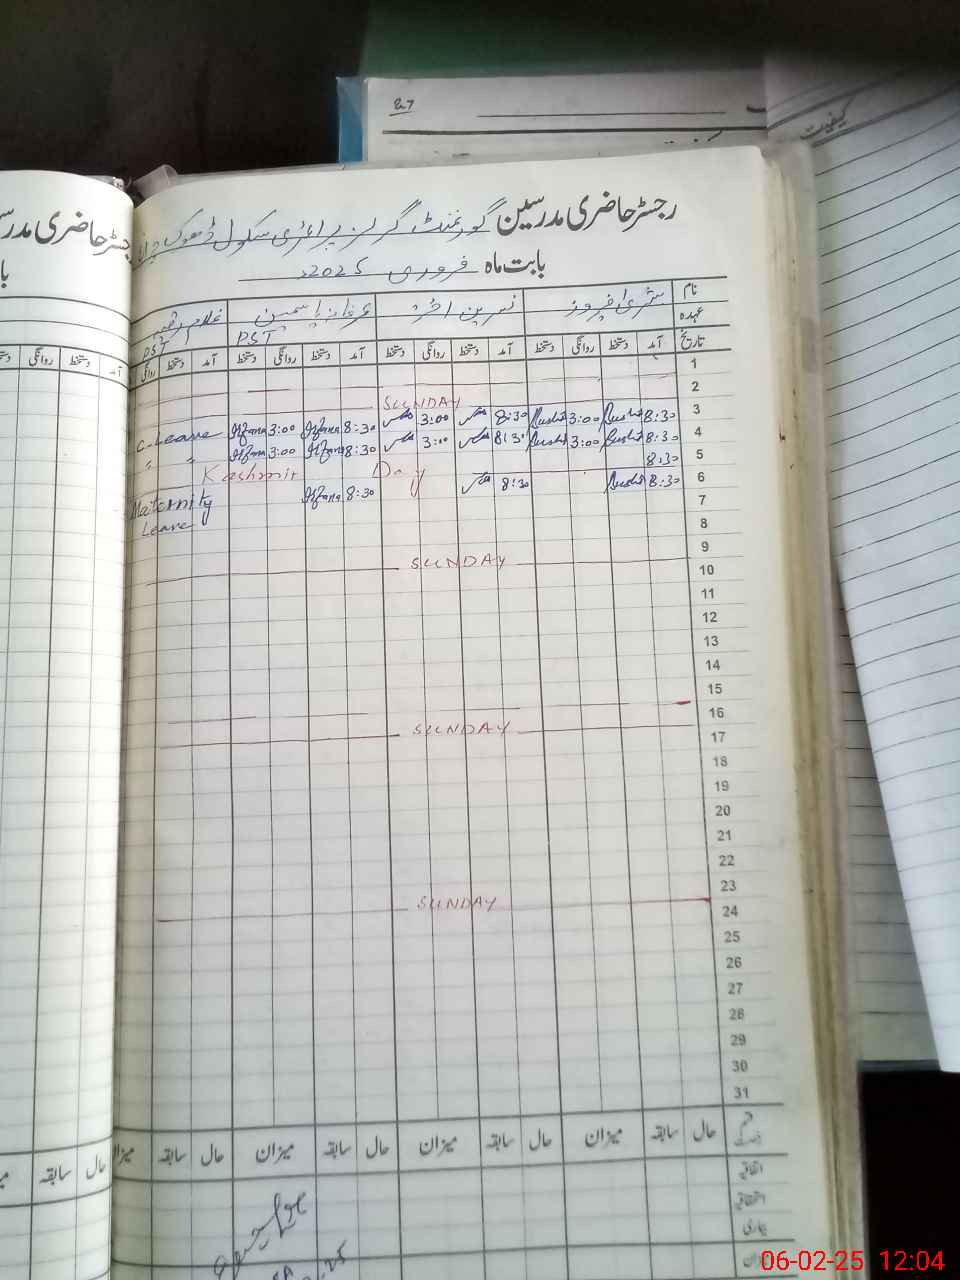 8.7
کیفیت
رجسٹر حاضری مدرسین گورنمنٹ گرلز پرائمری سکول ڈھوک
بابت ماہ فروری 2025ء
نام بشریٰ افروز نسرین اختر عرفانہ یاسمین غلام رقیہ
عہدہ PST PST
تاریخ آمد دستخط روانگی دستخط آمد دستخط روانگی دستخط آمد دستخط روانگی دستخط آمد دستخط روانگی
1
2 SUNDAY
3 8:30 Bushra 3:00 Bushra 8:30 3:00 8:30 Irfana 3:00 Irfana C-Leave
4 8:30 Bushra 3:00 Bushra 8:30 3:00 8:30 Irfana 3:00 Irfana " "
5 8:30 Kashmir Day
6 8:30 Bushra 8:30 8:30 Irfana Maternity Leave
7
8
9 SUNDAY
10
11
12
13
14
15
16 SUNDAY
17
18
19
20
21
22
23 SUNDAY
24
25
26
27
28
29
30
31
حال سابقہ میزان حال سابقہ میزان حال سابقہ میزان حال سابقہ میزان
اتفاقیہ
استحقاقیہ
بیماری
میزان
رجسٹر حاضری مدرسین
دستخط روانگی دستخط آمد
حال سابقہ
06-02-25 12:04